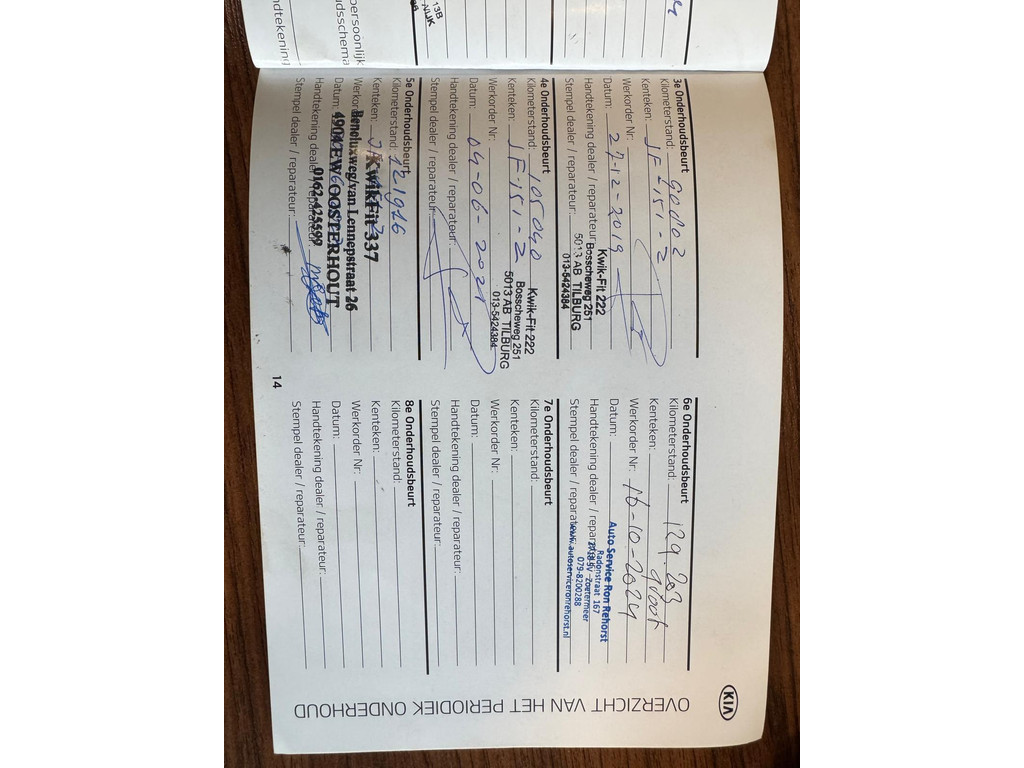 13B
NIJK
persoonlijk
dsschema
ndtekening
KIA
OVERZICHT VAN HET PERIODIEK ONDERHOUD
3e Onderhoudsbeurt
Kilometerstand:
Kenteken: JF-151-2
Werkorder Nr:
Datum: 27-12-2019
Handtekening dealer / reparateur:
Stempel dealer / reparateur:
Kwik-Fit 222
Bosscheweg 251
5013 AB TILBURG
013-5424384
4e Onderhoudsbeurt
Kilometerstand: 105040
Kenteken: JF-151-2
Werkorder Nr:
Datum: 04-06-2021
Handtekening dealer / reparateur:
Stempel dealer / reparateur:
Kwik-Fit 222
Bosscheweg 251
5013 AB TILBURG
013-5424384
5e Onderhoudsbeurt
Kilometerstand: 121916
Kenteken:
Werkorder Nr:
Datum:
Handtekening dealer / reparateur:
Stempel dealer / reparateur:
KwikFit 337
Beneluxweg/van Lennepstraat 26
4904EW OOSTERHOUT
0162-425699
14
6e Onderhoudsbeurt
Kilometerstand: 129.203
Kenteken: groot
Werkorder Nr: 16-10-2024
Datum:
Handtekening dealer / reparateur:
Stempel dealer / reparateur:
Auto Service Ron Rehorst
Radonstraat 167
2718 SV Zoetermeer
079-8200288
www.autoserviceronrehorst.nl
7e Onderhoudsbeurt
Kilometerstand:
Kenteken:
Werkorder Nr:
Datum:
Handtekening dealer / reparateur:
Stempel dealer / reparateur:
8e Onderhoudsbeurt
Kilometerstand:
Kenteken:
Werkorder Nr:
Datum:
Handtekening dealer / reparateur:
Stempel dealer / reparateur: